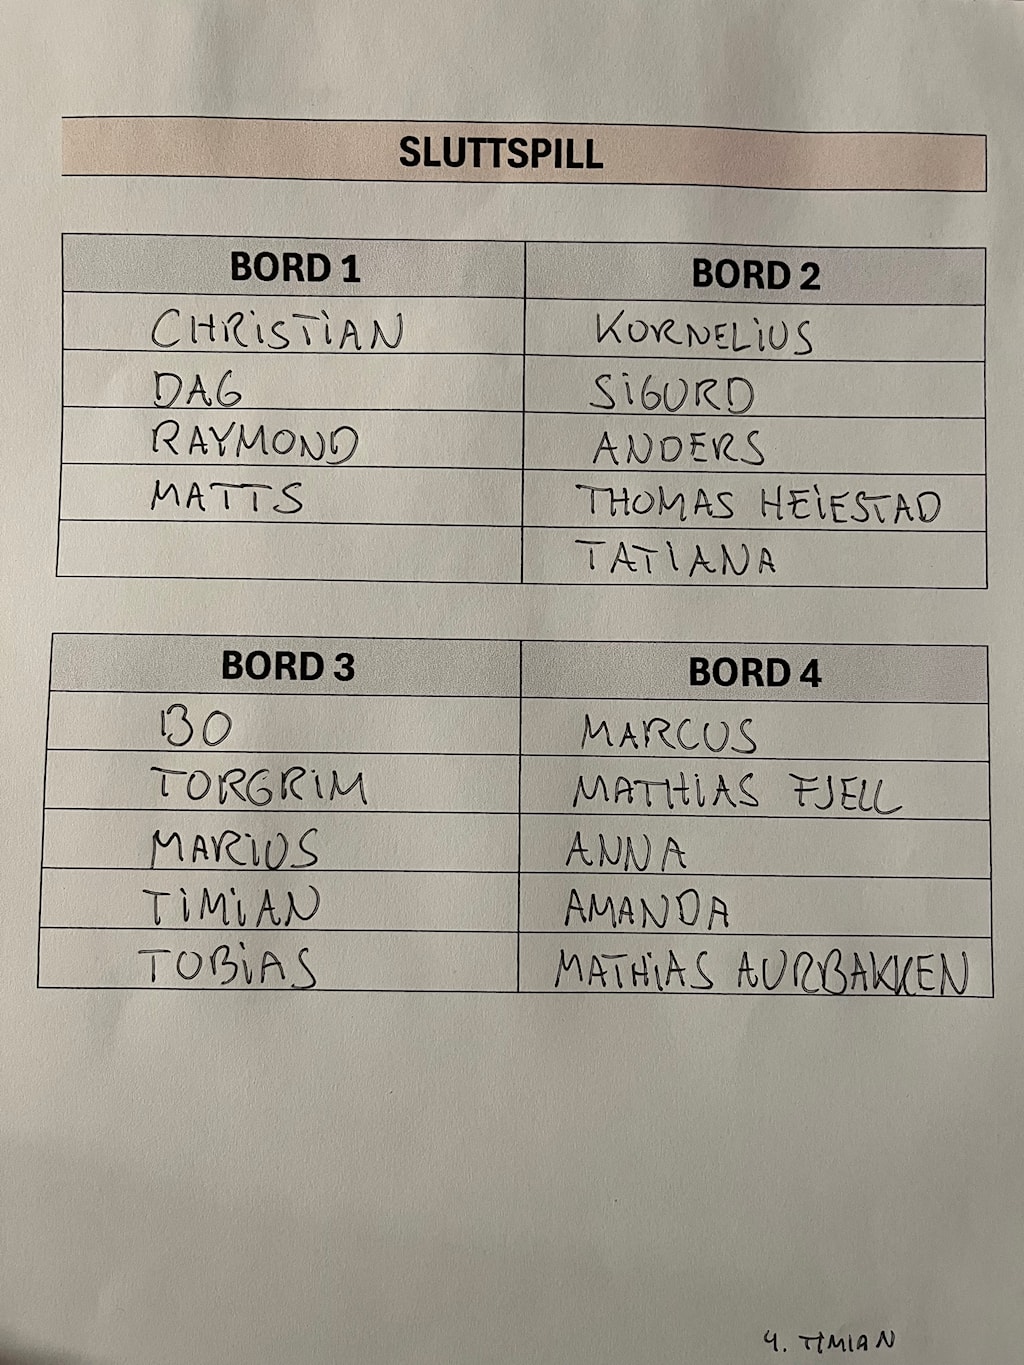 SLUTTSPILL
BORD 1 BORD 2
CHRISTIAN KORNELIUS
DAG SIGURD
RAYMOND ANDERS
MATTS THOMAS HEIESTAD
TATIANA
BORD 3 BORD 4
BO MARCUS
TORGRIM MATHIAS FJELL
MARIUS ANNA
TIMIAN AMANDA
TOBIAS MATHIAS AURBAKKEN
4. TIMIAN